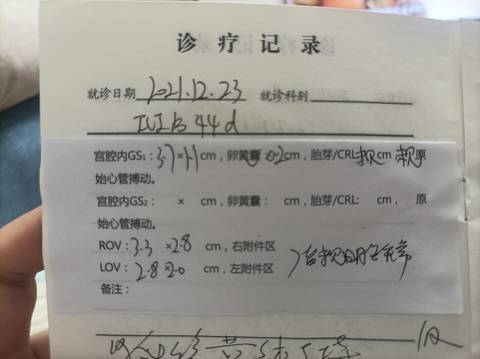 诊疗记录
就诊日期 2021.12.23 就诊科别
IUI后44d
宫腔内GS₁: 3.7×1.1cm, 卵黄囊: 0.2cm, 胎芽/CRL: 未见cm 未见原
始心管搏动。
宫腔内GS₂: × cm, 卵黄囊: cm, 胎芽/CRL: cm, 原
始心管搏动。
ROV: 3.3 ×2.8 cm, 右附件区
LOV: 2.8×2.0 cm, 左附件区
备注: